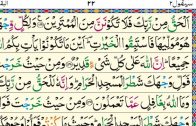 سيقول ٢ ٢٢
اَلْحَقُّ مِنْ رَّبِّكَ فَلَا تَكُوْنَنَّ مِنَ الْمُمْتَرِيْنَ وَلِكُلٍّ وِّجْهَةٌ
هُوَ مُوَلِّيْهَا فَاسْتَبِقُوا الْخَيْرٰتِ اَيْنَ مَا تَكُوْنُوْا يَاْتِ بِكُمُ اللّٰهُ
جَمِيْعًا اِنَّ اللّٰهَ عَلٰى كُلِّ شَيْءٍ قَدِيْرٌ وَمِنْ حَيْثُ خَرَجْتَ
فَوَلِّ وَجْهَكَ شَطْرَ الْمَسْجِدِ الْحَرَامِ وَاِنَّهٗ لَلْحَقُّ مِنْ رَّبِّكَ
وَمَا اللّٰهُ بِغَافِلٍ عَمَّا تَعْمَلُوْنَ وَمِنْ حَيْثُ خَرَجْتَ